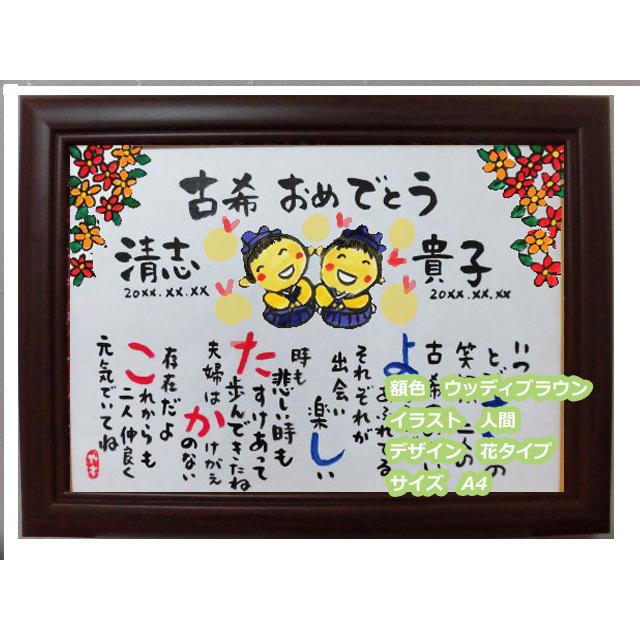 古希 おめでとう
清志
20xx.xx.xx
貴子
20xx.xx.xx
いつ
と の
笑 人の
古希 い
よ ふれてる
それぞれが
出会い
楽しい
時も
悲しい時も
たすけあって
歩んできたね
夫婦はかけがえ
のない
存在だよ
これからも
二人仲良く
元気でいてね
やす
額色 ウッディブラウン
イラスト 人間
デザイン 花タイプ
サイズ A4